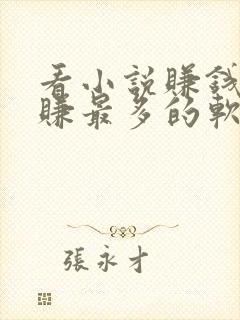 看小說賺錢
賺最多的軟
張永才